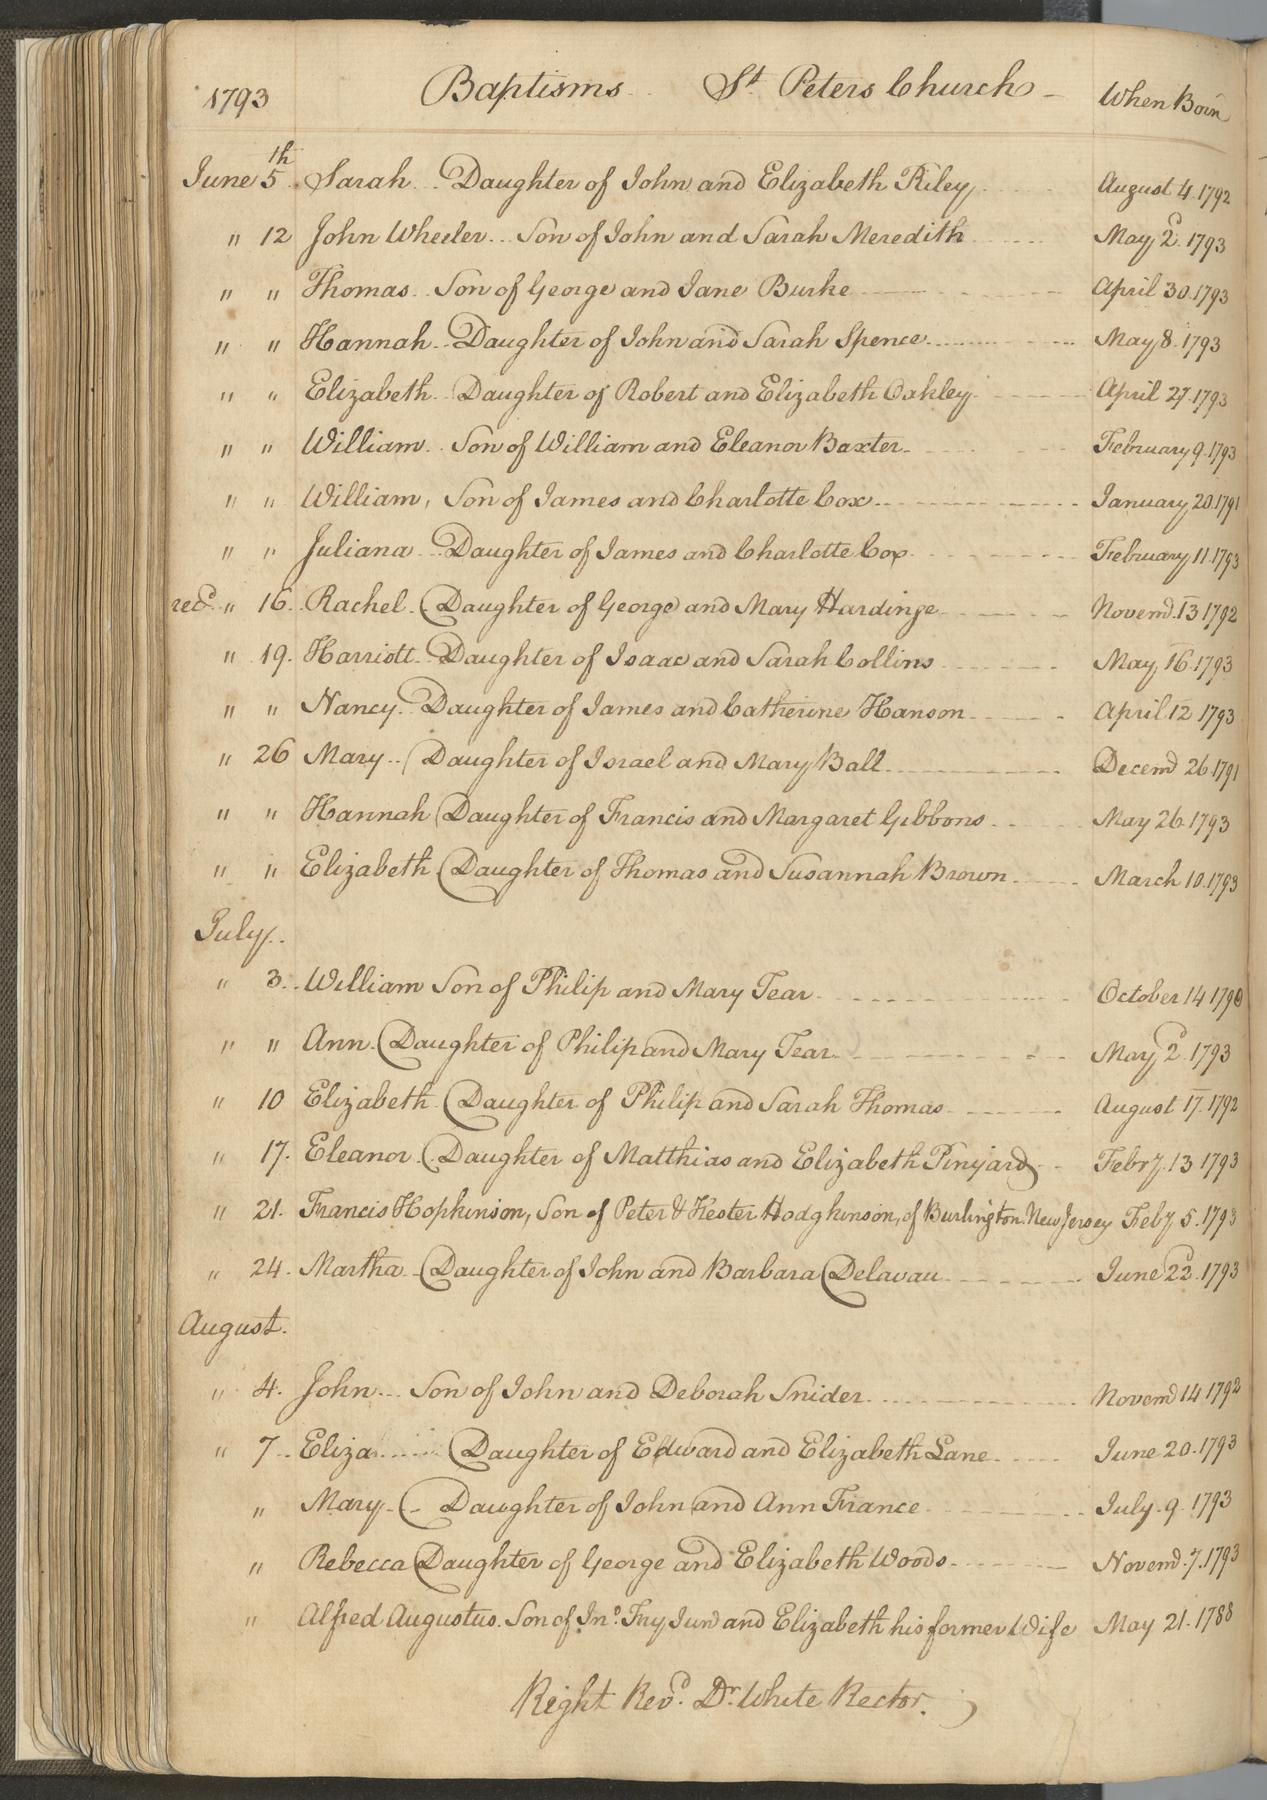 1793 Baptisms St. Peters Church When Born
June 5th Sarah Daughter of John and Elizabeth Riley August 4. 1792
" 12 John Wheeler Son of John and Sarah Meredith May 2d. 1793
" " Thomas Son of George and Jane Burke April 30. 1793
" " Hannah Daughter of John and Sarah Spence May 8. 1793
" " Elizabeth Daughter of Robert and Elizabeth Oakley April 27. 1793
" " William Son of William and Eleanor Baxter February 9. 1793
" " William, Son of James and Charlotte Cox January 20. 1791
" " Juliana Daughter of James and Charlotte Cox February 11. 1793
recd " 16. Rachel Daughter of George and Mary Hardinge Novemd. 13 1792
" 19. Harriott Daughter of Isaac and Sarah Collins May 16. 1793
" " Nancy Daughter of James and Catherine Hanson April 12 1793
" 26 Mary Daughter of Israel and Mary Ball Decemd 26 1791
" " Hannah Daughter of Francis and Margaret Gibbons May 26. 1793
" " Elizabeth Daughter of Thomas and Susannah Brown March 10. 1793
July
" 3. William Son of Philip and Mary Tear October 14 1790
" " Ann Daughter of Philip and Mary Tear May 2d. 1793
" 10 Elizabeth Daughter of Philip and Sarah Thomas August 17. 1792
" 17. Eleanor Daughter of Matthias and Elizabeth Pinyard Febry. 13 1793
" 21. Francis Hopkinson, Son of Peter & Hester Hodgkinson, of Burlington New Jersey Feby. 5. 1793
" 24. Martha Daughter of John and Barbara Delavau June 22d. 1793
August.
" 4. John Son of John and Deborah Snider Novemd 14 1792
" 7 Eliza Daughter of Edward and Elizabeth Lane June 20. 1793
" Mary Daughter of John and Ann France July. 9. 1793
" Rebecca Daughter of George and Elizabeth Woods Novemd. 7. 1793
" Alfred Augustus. Son of Jno. Fry Jund and Elizabeth his former Wife May 21. 1788
Right Revd. Dr. White Rector.